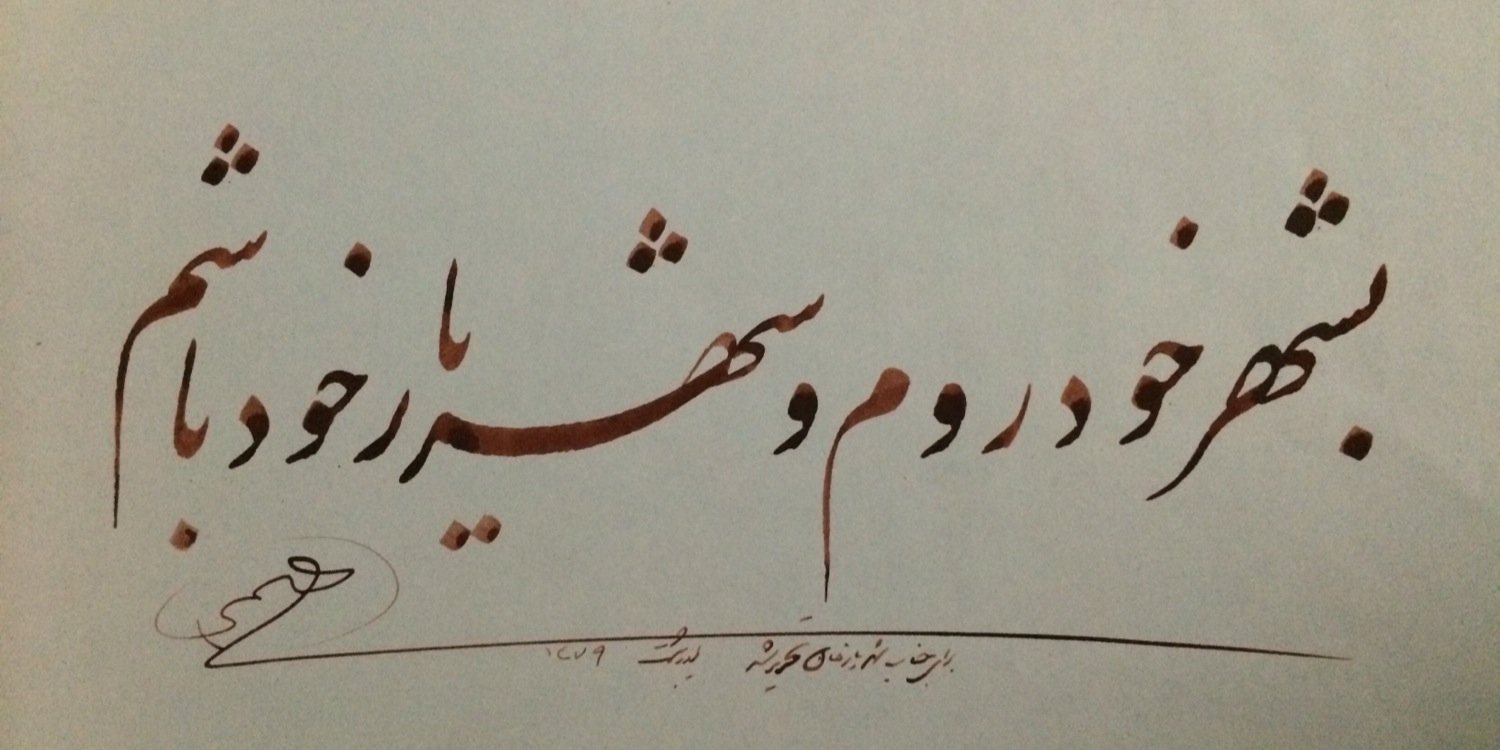 بشهر خود روم و شهریار خود باشم
برای جناب شهروز خان تحریر شد